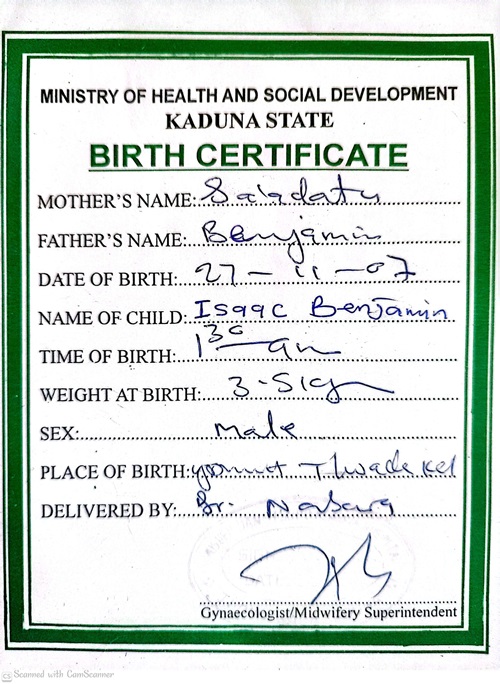 MINISTRY OF HEALTH AND SOCIAL DEVELOPMENT
KADUNA STATE
BIRTH CERTIFICATE
MOTHER'S NAME: Sa'adatu
FATHER'S NAME: Benjamin
DATE OF BIRTH: 27 - 11 - 07
NAME OF CHILD: Isaac Benjamin
TIME OF BIRTH: 1 30 am
WEIGHT AT BIRTH:
SEX: Male
PLACE OF BIRTH:
DELIVERED BY:
Gynaecologist/Midwifery Superintendent
CS Scanned with CamScanner